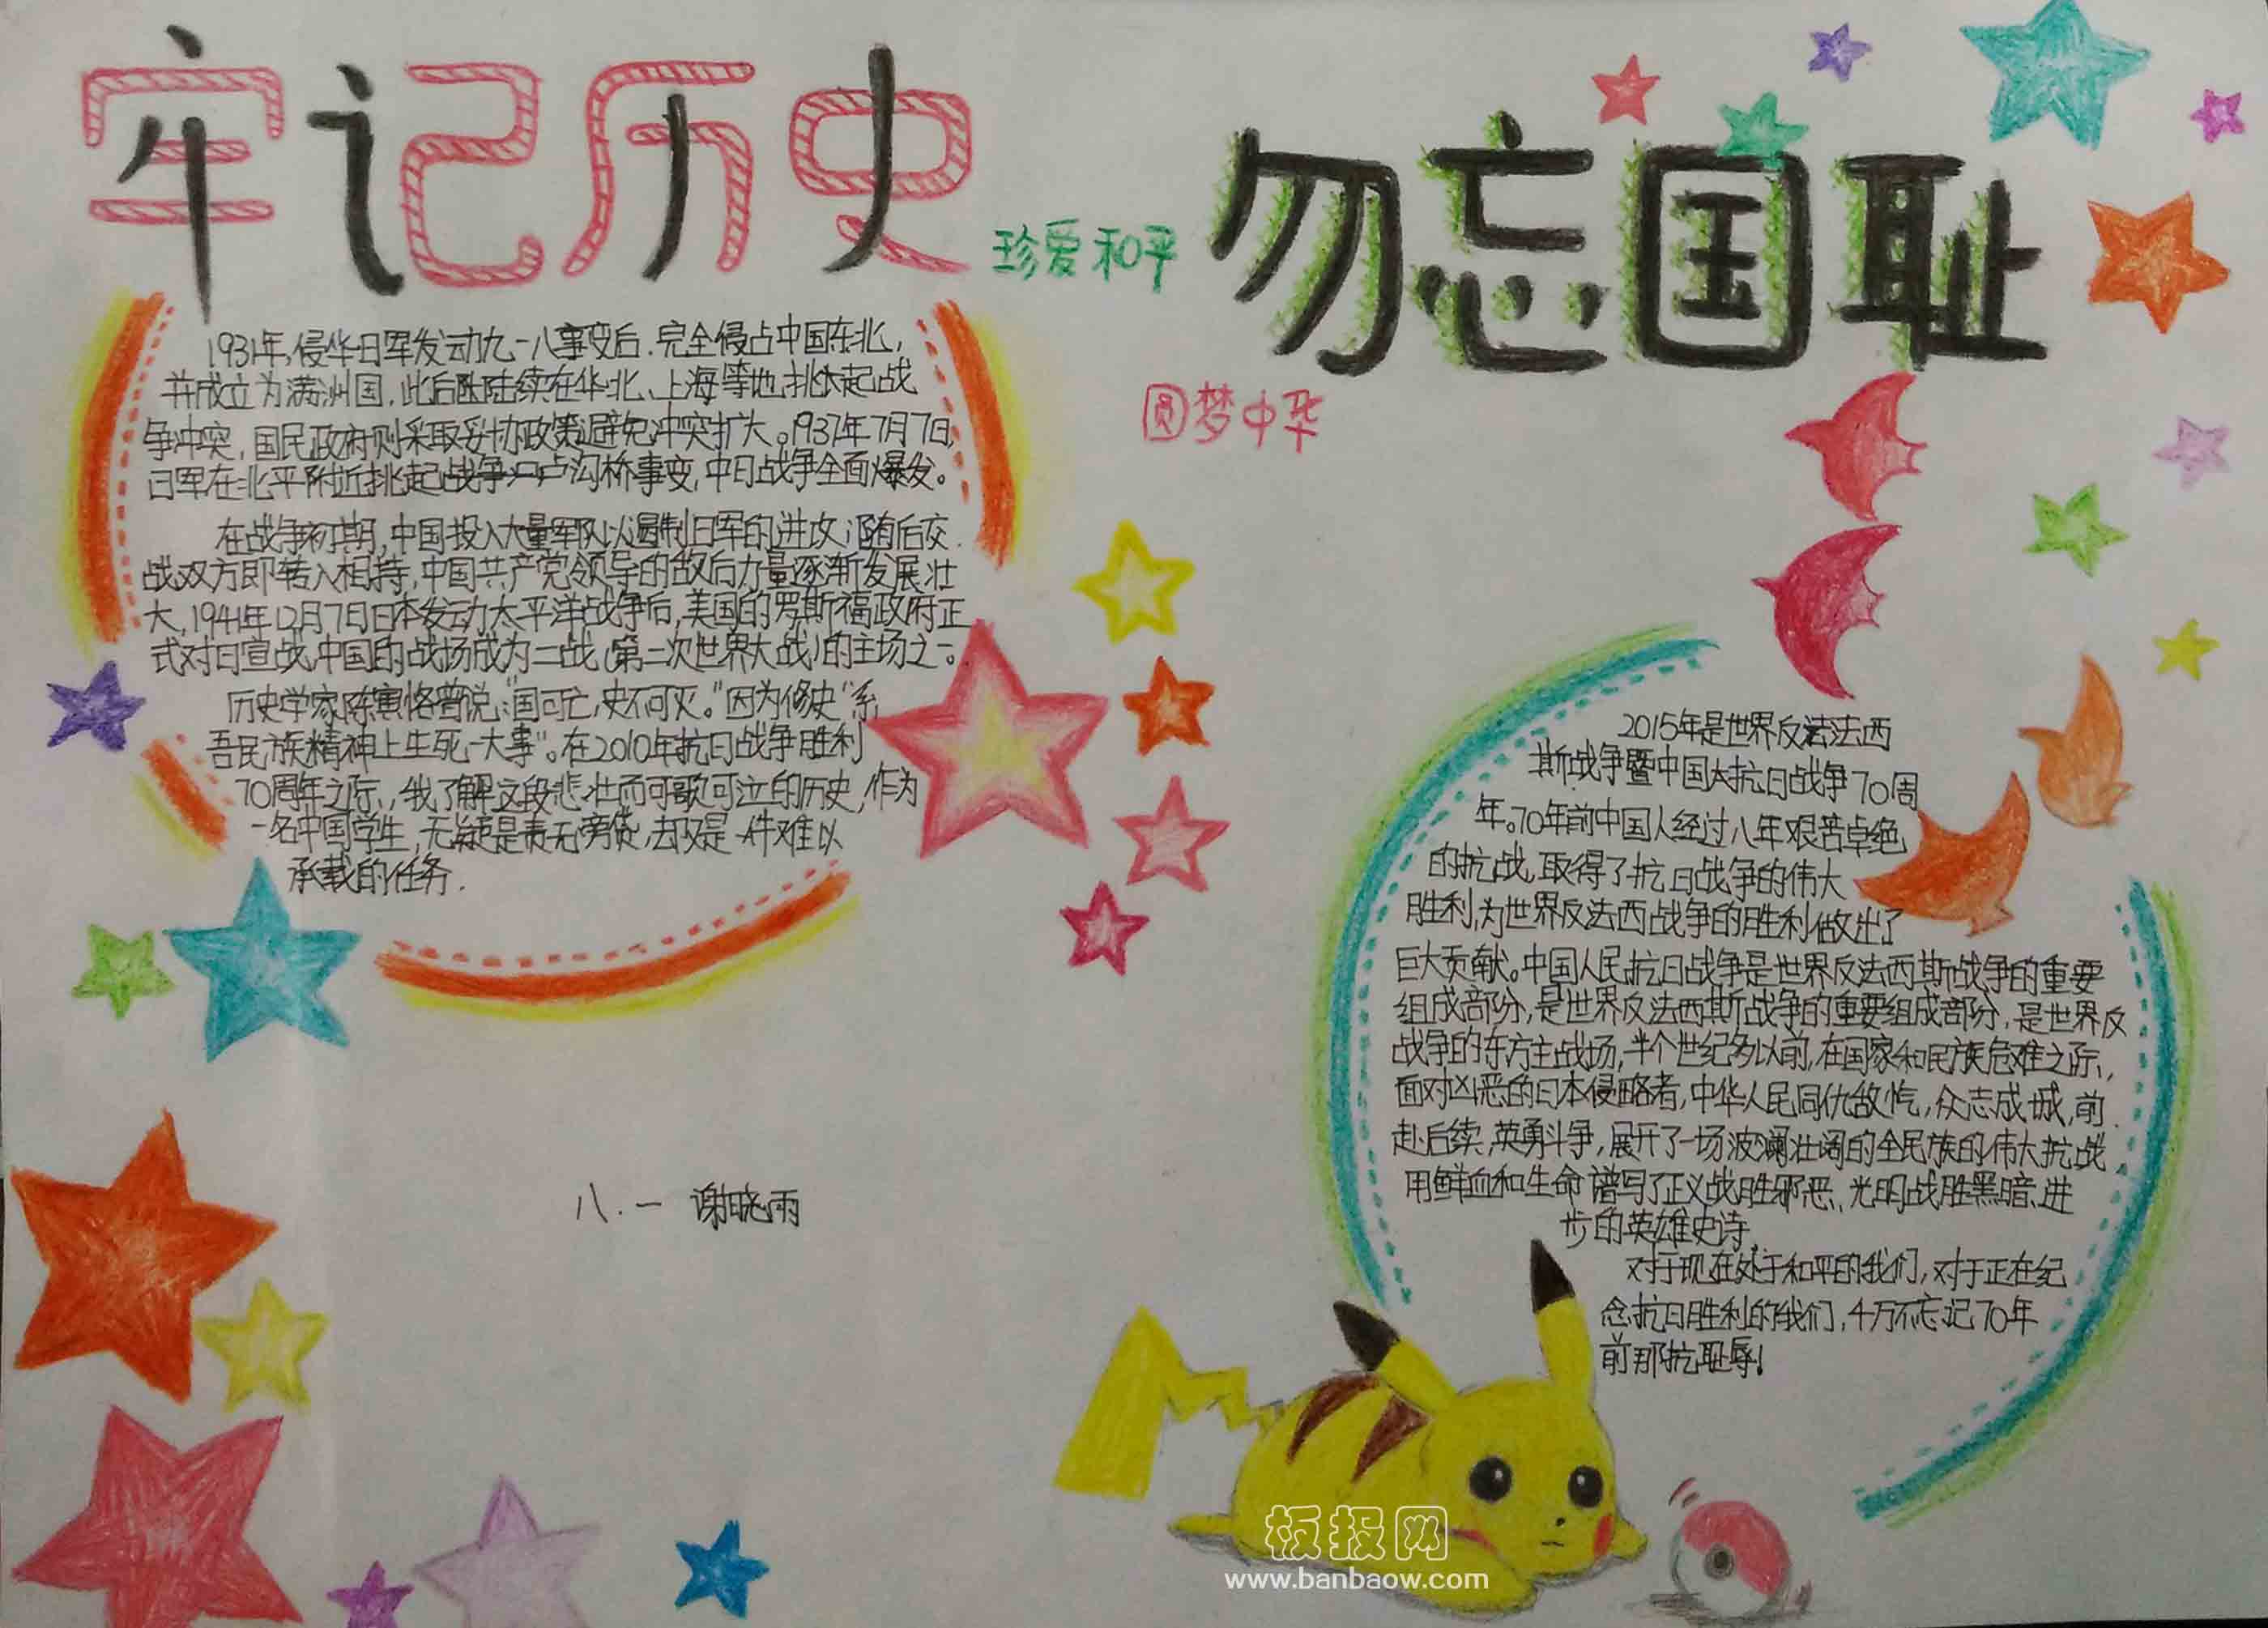 牢记历史
珍爱和平
勿忘国耻
圆梦中华
1931年,侵华日军发动九一八事变后.完全侵占中国东北,
并成立为满洲国.此后陆续在华北、上海等地挑起战
争冲突,国民政府则采取妥协政策避免冲突扩大。1937年7月7日,
日军在北平附近挑起战争卢沟桥事变,中日战争全面爆发。
在战争初期,中国投入大量军队以遏制日军的进攻,随后交
战双方即转入相持,中国共产党领导的敌后力量逐渐发展壮
大,1941年12月7日日本发动太平洋战争后,美国的罗斯福政府正
式对日宣战,中国的战场成为二战(第二次世界大战)的主场之一。
历史学家陈寅恪曾说:"国可亡,史不可灭。"因为修史"系
吾民族精神上生死一大事"。在2010年抗日战争胜利
70周年之际,我了解这段悲壮而可歌可泣的历史,作为
一名中国学生,无疑是责无旁贷,却又是一件难以
承载的任务.
八.一 谢晓雨
2015年是世界反法西
斯战争暨中国抗日战争70周
年。70年前中国人经过八年艰苦卓绝
的抗战,取得了抗日战争的伟大
胜利,为世界反法西战争的胜利做出了
巨大贡献。中国人民抗日战争是世界反法西斯战争的重要
组成部分,是世界反法西斯战争的重要组成部分,是世界反
战争的东方主战场,半个世纪多以前,在国家和民族危难之际,
面对凶恶的日本侵略者,中华人民同仇敌忾,众志成城,前
赴后续,英勇斗争,展开了一场波澜壮阔的全民族的伟大抗战,
用鲜血和生命谱写了正义战胜邪恶、光明战胜黑暗、进
步的英雄史诗.
对于现在处于和平的我们,对于正在纪
念抗日胜利的我们,千万不忘记70年
前那抗耻辱!
板报网
www.banbaow.com